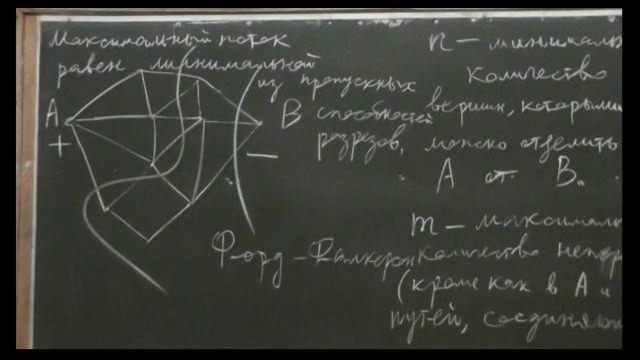 Максимальный поток
равен минимальной
из пропускных
способностей
разрезов.
A
+
B
−
Форд - Фалкерсон
n - минималь
количество
вершин, которыми
можно отделить
A от B.
m - максимал
количество непер
(кроме как в A и
путей, соединяю